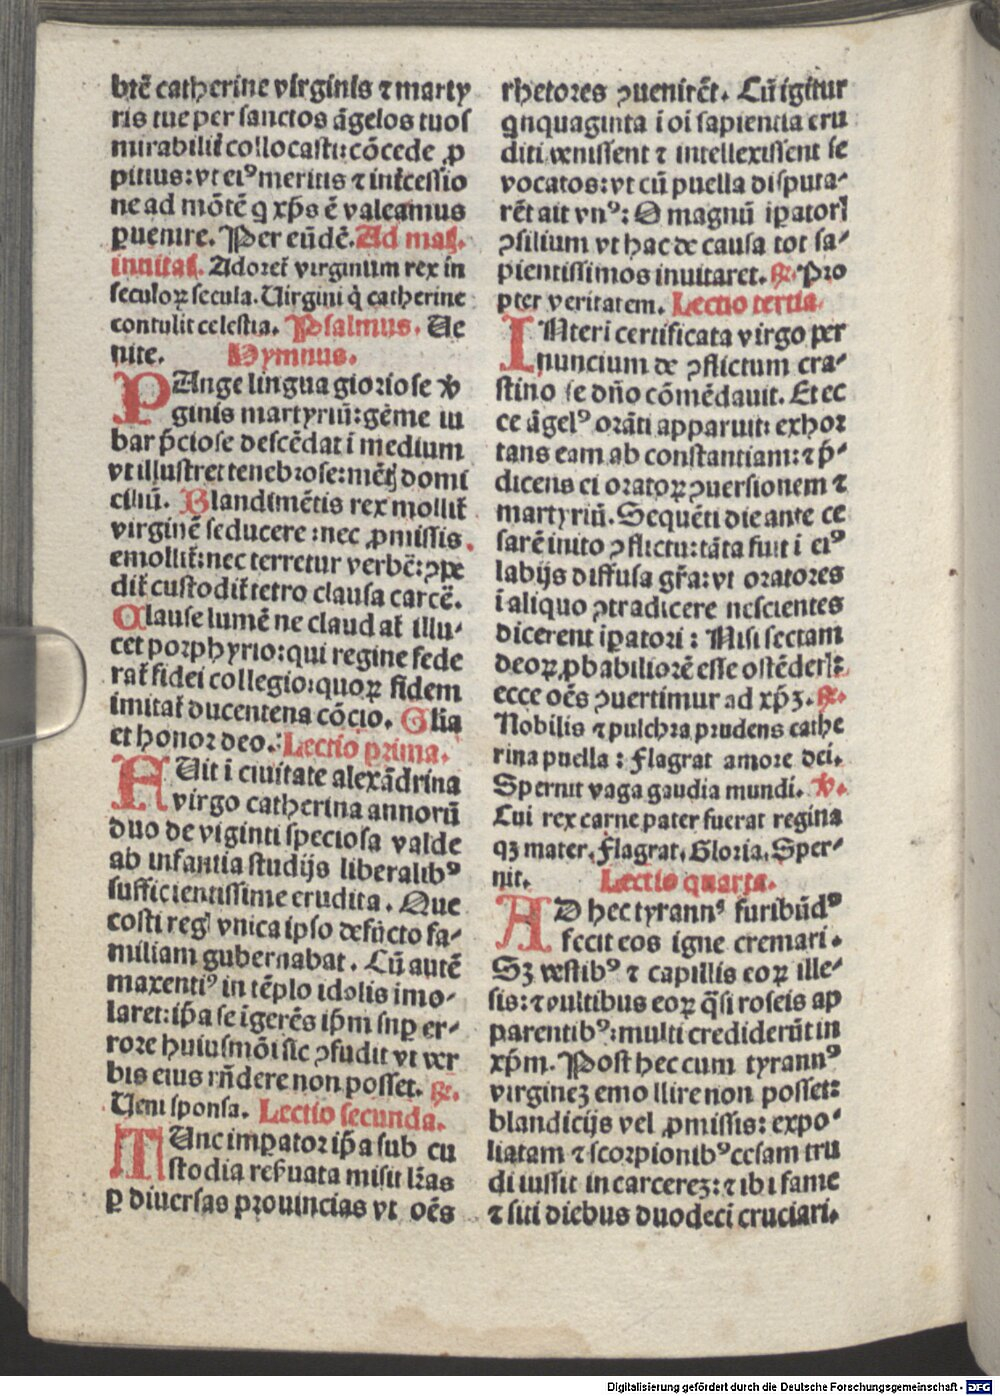 btē catherine virginis ⁊ marty
ris tue per sanctos āgelos tuos
mirabilit̄ collocasti: cōcede ꝓ
pitius: vt eiꝰ meritis ⁊ int̄cessio
ne ad mōtē q xp̄s ē valeamus
ꝑuenire. Per eūdē. Ad maꝭ.
inuitaꝭ. Adoret̄ virginum rex in
seculoꝝ secula. Uirgini q̇ catherine
contulit celestia. Psalmus. Ue
nite. Hymnus.
PAnge lingua gloriose v̓
ginis martyriū: gēme iu
bar p̄ciose descēdat ī medium
vt illustret tenebrose: mētꝭ domi
ciliū. Blandimētis rex mollit̄
virginē seducere: nec ꝓmissis
emollit̄: nec terretur verbē: ꝯpe
dit̄ custodit̄ tetro clausa carcē.
Clause lumē ne claudat̄ illu⸗
cet porphyrio: qui regine fede
rat̄ fidei collegio: quoꝝ fidem
imitat̄ ducentena cōcio. Glīa
et honor deo. Lectio prima.
FUit ī ciuitate alexādrina
virgo catherina annorū
duo de viginti speciosa valde
ab infantia studijs liberalibꝰ
sufficientissime erudita. Que
costi regꝭ vnica ipso defūcto fa⸗
miliam gubernabat. Cū autē
maxentiꝰ in tēplo idolis imo⸗
laret: ip̄a se īgerēs ip̄m suꝑ er⸗
rore huiusmōi sic ꝯfudit vt ver
bis eius rn̄dere non posset. ꝶ.
Ueni sponsa. Lectio secunda.
TUnc imꝑator ip̄a sub cu
stodia reſuata misit lr̄as
ꝑ diuersas prouincias vt oēs
rhetores ꝯuenirēt. Cū igitur
qnquaginta ī oī sapientia eru
diti venissent ⁊ intellexissent se
vocatos: vt cū puella disputa⸗
rēt ait vnꝰ: O magnū iꝑatorꝭ
ꝯsilium vt hac de causa tot sa⸗
pientissimos inuitaret. ꝶ. Pro
pter veritatem. Lectio tertia.
INteri certificata virgo per
nuncium de ꝯflictum cra⸗
stino se dn̄o cōmēdauit. Et ec
ce āgelꝰ orāti apparuit: exhor
tans eam ab constantiam: ⁊ p̄⸗
dicens ei oratoꝝ ꝯuersionem ⁊
martyriū. Sequēti die ante ce
sarē inito ꝯflictu: tāta fuit ī eiꝰ
labijs diffusa gr̄a: vt oratores
ī aliquo ꝯtradicere nescientes
dicerent iꝑatori: Nisi sectam
deoꝝ ꝓbabiliorē esse ostēderis:
ecce oēs ꝯuertimur ad xp̄ꝫ. ꝶ.
Nobilis ⁊ pulchra prudens cathe
rina puella: Flagrat amore dei.
Spernit vaga gaudia mundi. ℣.
Cui rex carne pater fuerat regina
qꝫ mater. Flagrat. Gloria. Sper⸗
nit. Lectio quarta.
AD hec tyrannꝰ furibūdꝰ
fecit eos igne cremari.
Sꝫ vestibꝰ ⁊ capillis eoꝝ ille⸗
sis: ⁊ vultibus eoꝝ q̄si roseis ap
parentibꝰ: multi crediderūt in
xp̄m. Post hec cum tyrannꝰ
virgineꝫ emollire non posset:
blandicijs vel ꝓmissis: expo⸗
liatam ⁊ scorpionibꝰ cesam tru
di iussit in carcereꝫ: ⁊ ibi fame
⁊ siti diebus duodeci cruciari.
Digitalisierung gefördert durch die Deutsche Forschungsgemeinschaft - DFG